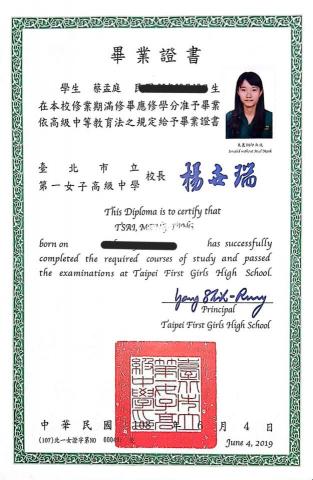 畢業證書
學生 蔡孟庭 民 生
在本校修業期滿修畢應修學分准予畢業
依高級中等教育法之規定給予畢業證書
Invalid without Steel Mark
臺北市立
第一女子高級中學
校長
楊世瑞
This Diploma is to certify that
TSAI,
born on has successfully
completed the required courses of study and passed
the examinations at Taipei First Girls High School.
Yang Shih-Ruey
Principal
Taipei First Girls High School
臺北市立
第一女子高
級中學
中華民國 108 年 6 月 4 日
(107)北一女證字第NO
June 4, 2019